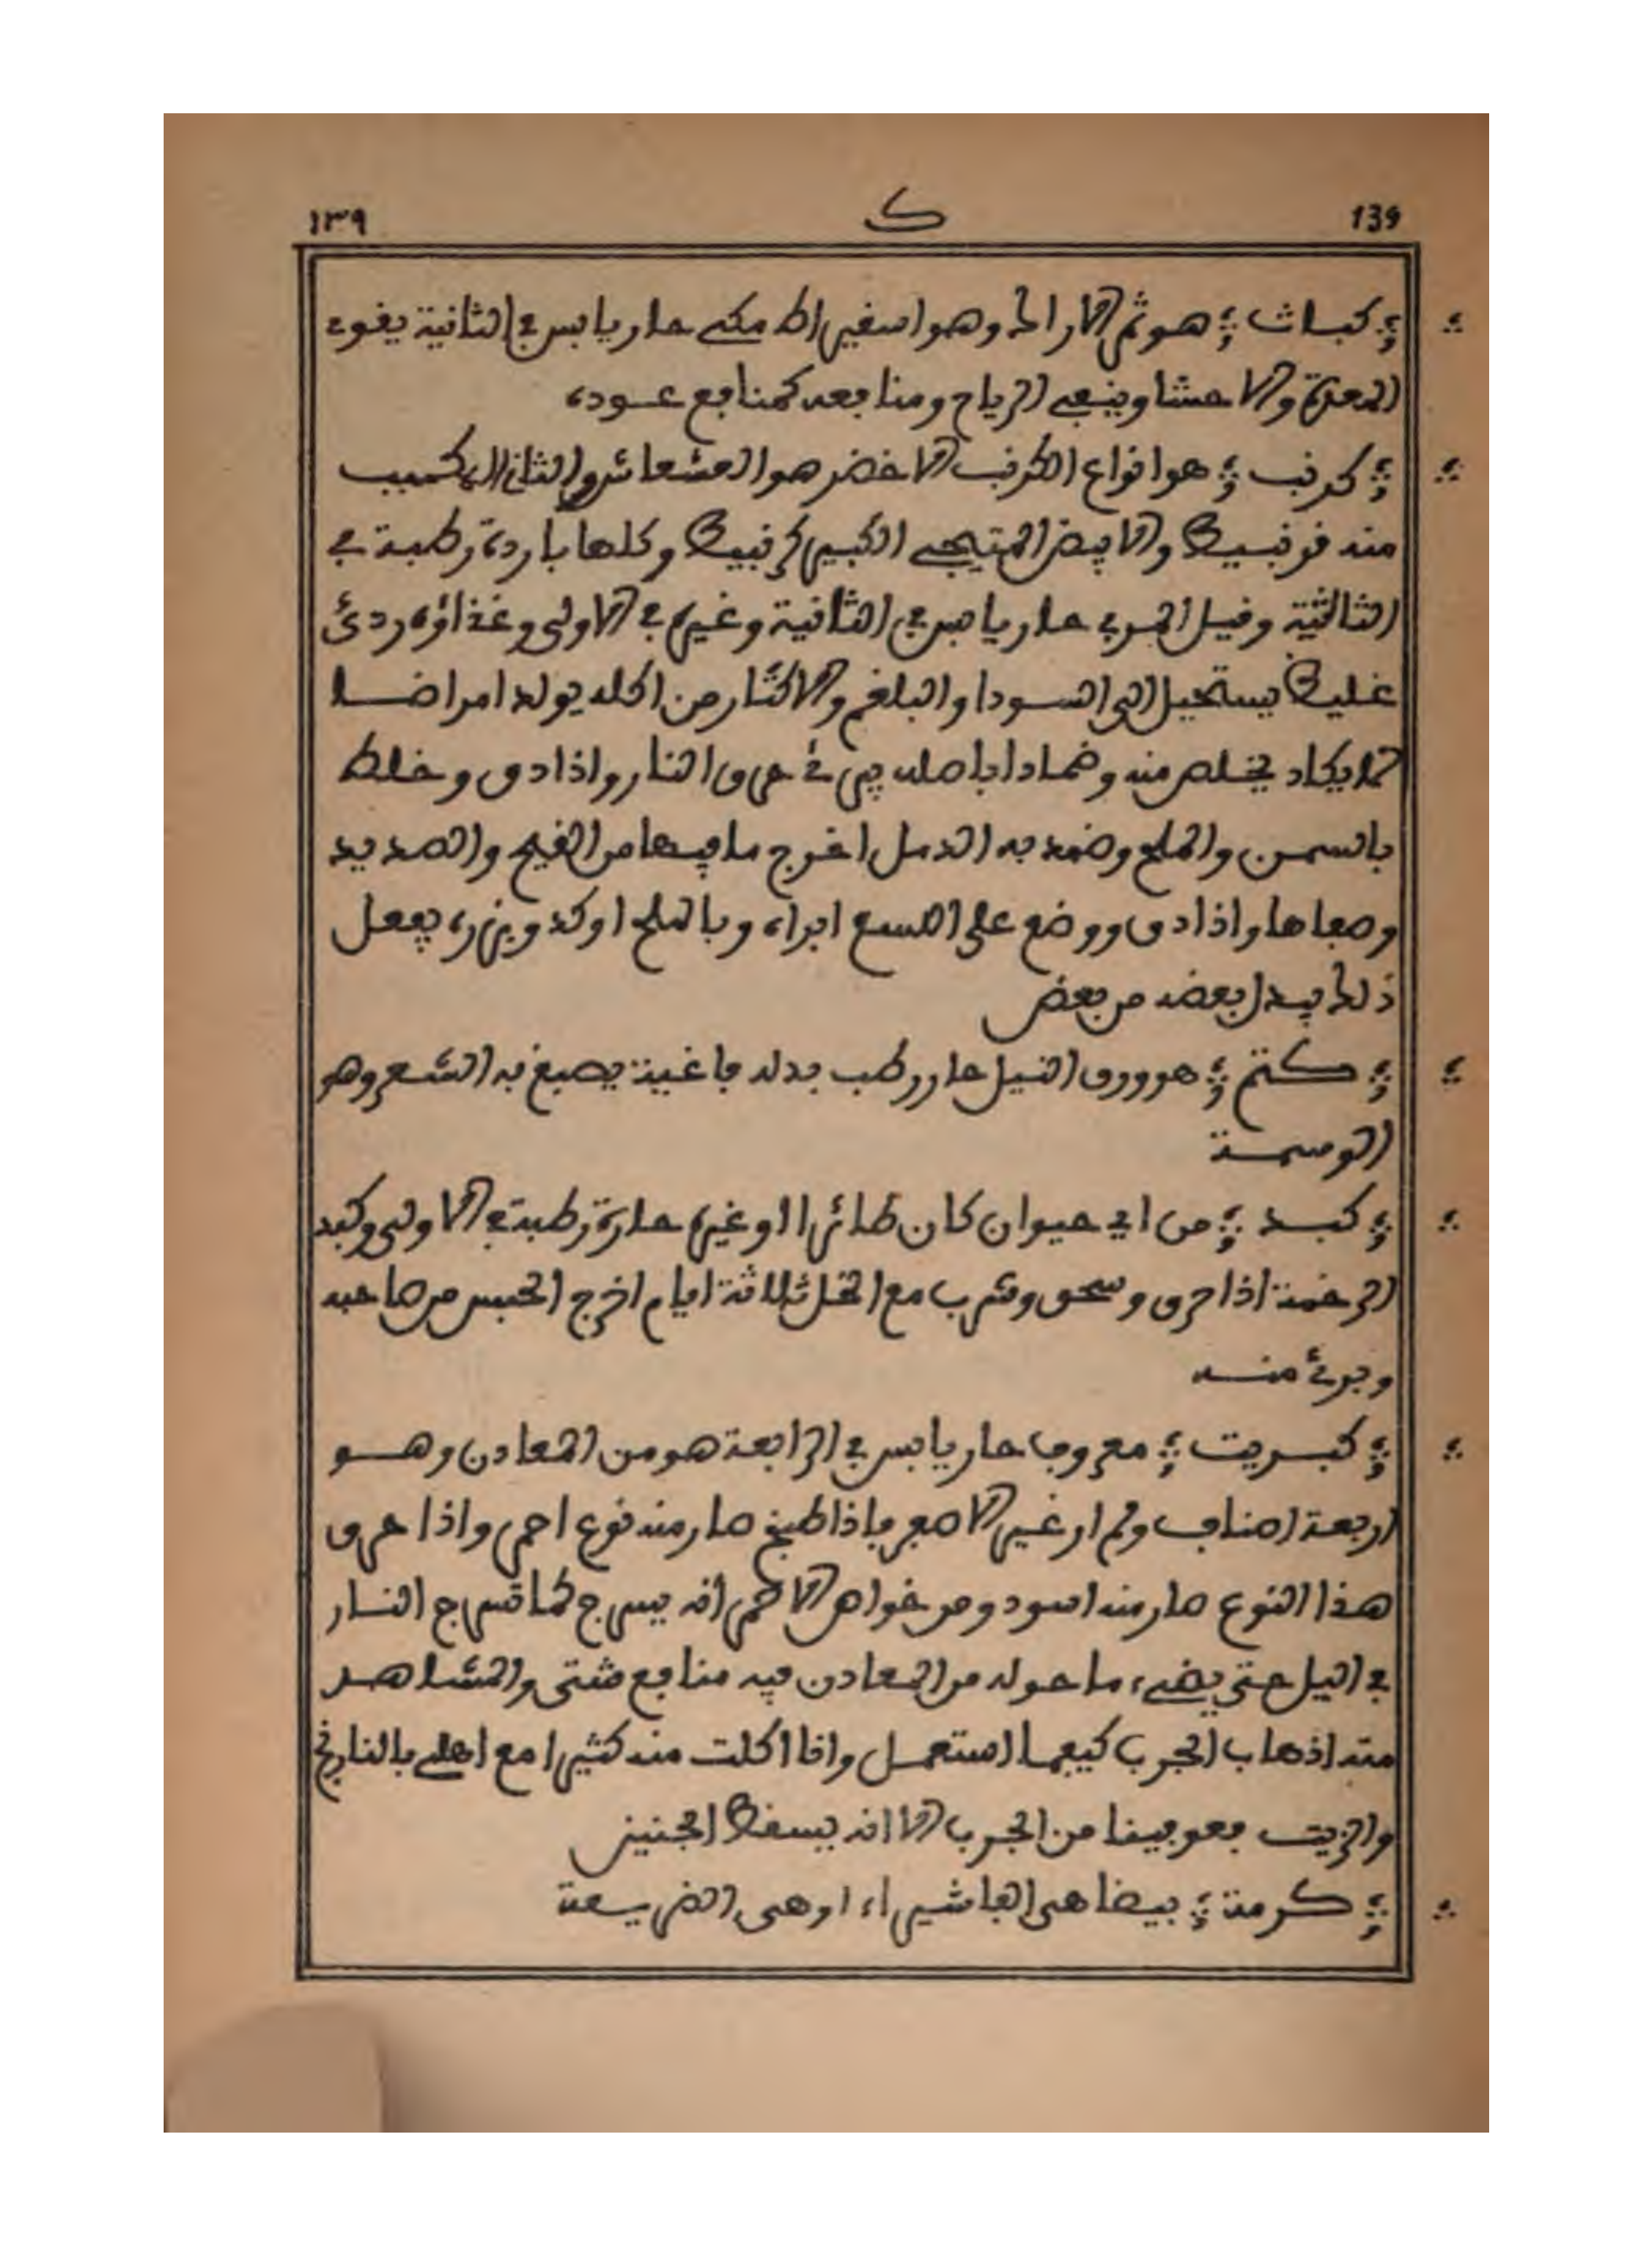 139 ك ١٣٩
كباث هو ثمر الاراك وهو اسفيراك مكي حار يابس في الثانية يقوي
المعدة والاحشا وينفي الرياح ومنافعه كمنافع عوده
كرنب هو انواع الكرنب الاخضر هو المشعاشر والثاني
منه قرنبيط والابيض الكبير كرنبيط وكلها باردة رطبة في
الثالثية وقيل البري حار يابس في الثانية وغيره في الاولى وغذاؤه ردئ
غليظ يستحيل الى السودا والبلغم والاكثار من اكله يولد امراضا
لا يكاد يخلص منه وضمادا باصله يبرئ حرق النار واذا دق وخلط
بالسمن والملح وضمد به الدمل اخرج ما فيها من القيح والصديد
وصفاها واذا دق ووضع على اللسع ابراه وبالملح اوكد وبزره يفعل
ذلك يبدل بعضه من بعض
كتم هو ورق النيل حار رطب بدله فاغية يصبغ به الشعر وهو
الوسمة
كبد من اي حيوان كان طائرا او غيره حارة رطبة في الاولى وكبد
الرخمة اذا حرق وسحق وشرب مع الخل ثلاثة ايام اخرج الحبس من صاحبه
وبرئ منه
كبريت معروف حار يابس في الرابعة هو من المعادن وهو
اربعة اصناف ولم ار غير الاصفر فاذا طبخ صار منه نوع احمر واذا حرق
هذا النوع صار منه اسود ومن خواص الاحمر انه يسرج كما تسرج النار
في اليل حتى يضيء ما حوله من المعادن فيه منافع شتى والمشاهد
منه اذهاب الجرب كيفما استعمل وانا اكلت منه كثيرا مع اهلي بالنارنج
والزيت فعوفينا من الجرب الا انه يسقط الجنين
كرمة بيضا هي الفاشيراء او هي